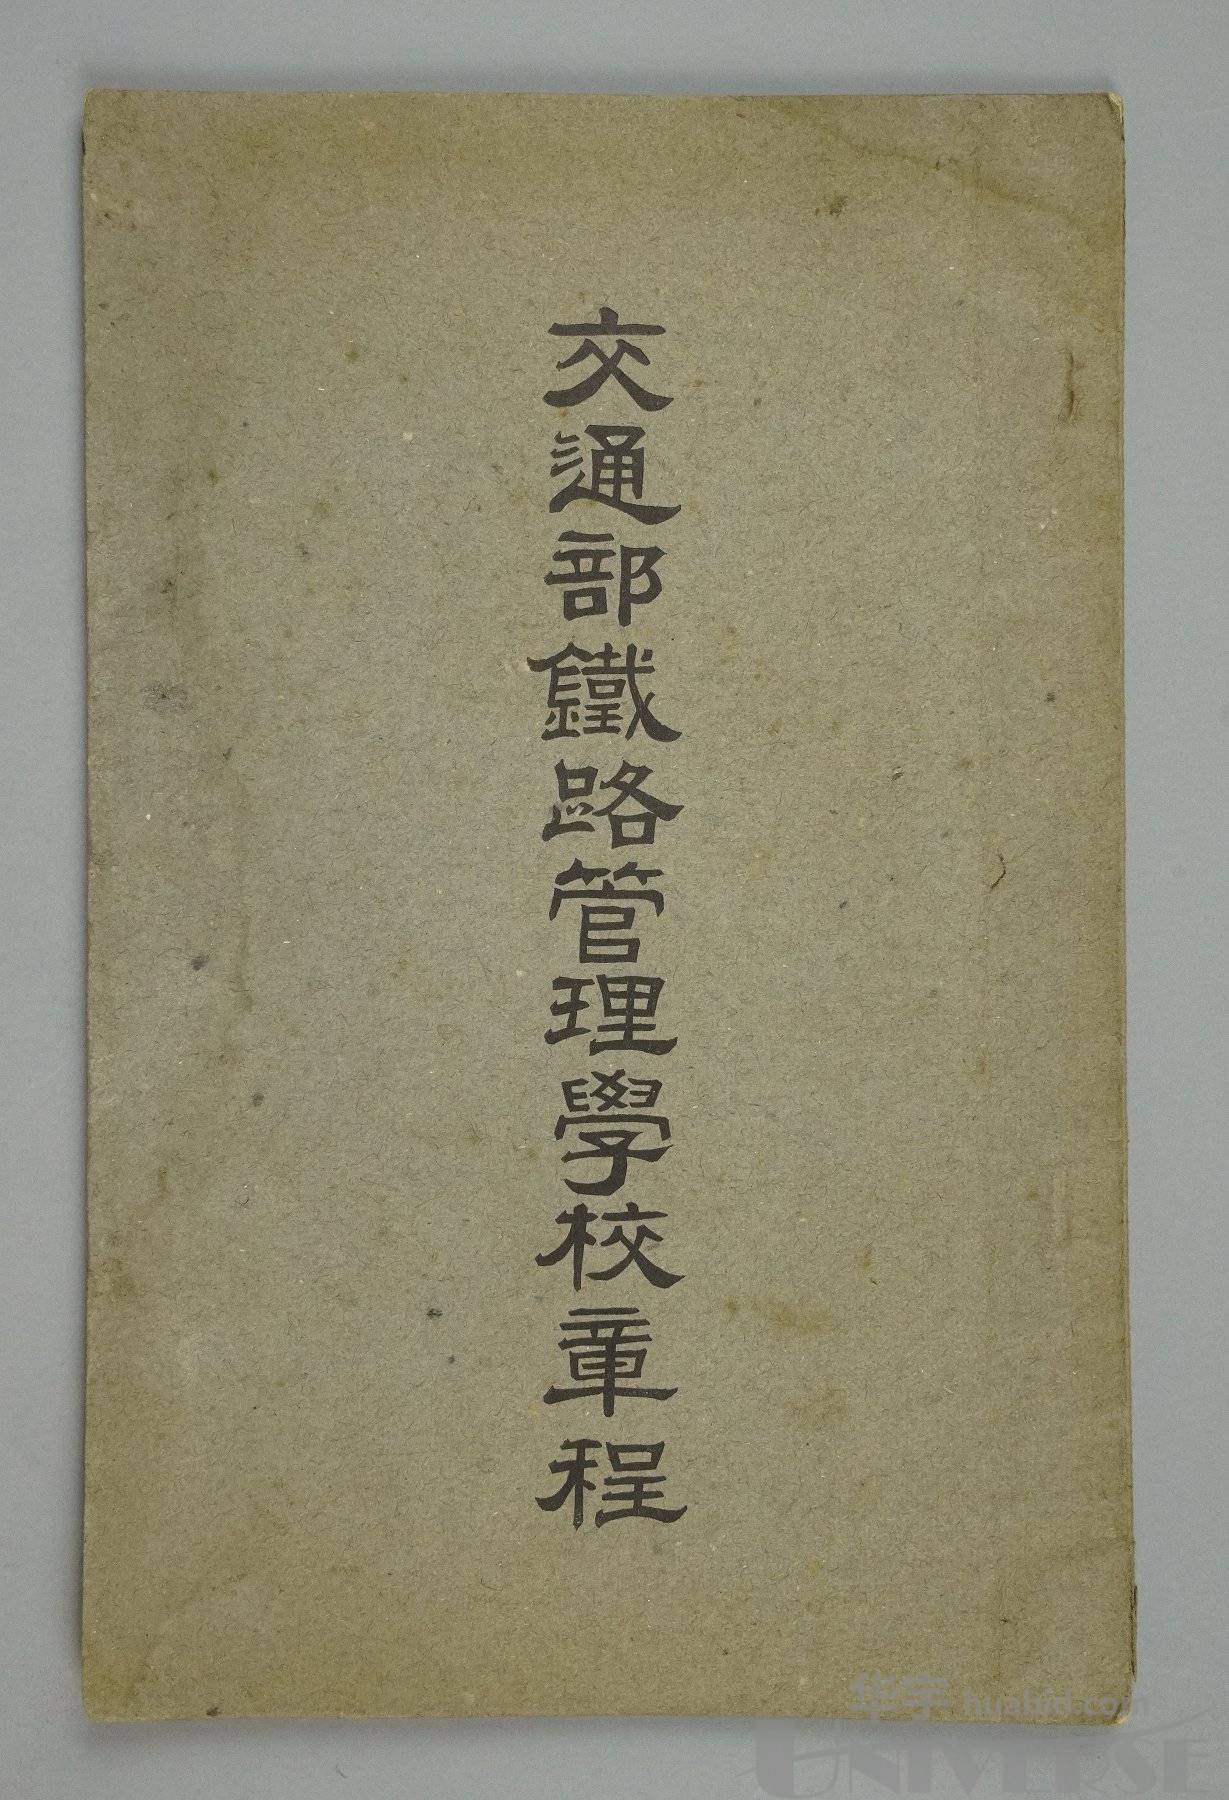 交通部鐵路管理學校章程
华宇 hyabid.com
UNIVERSE